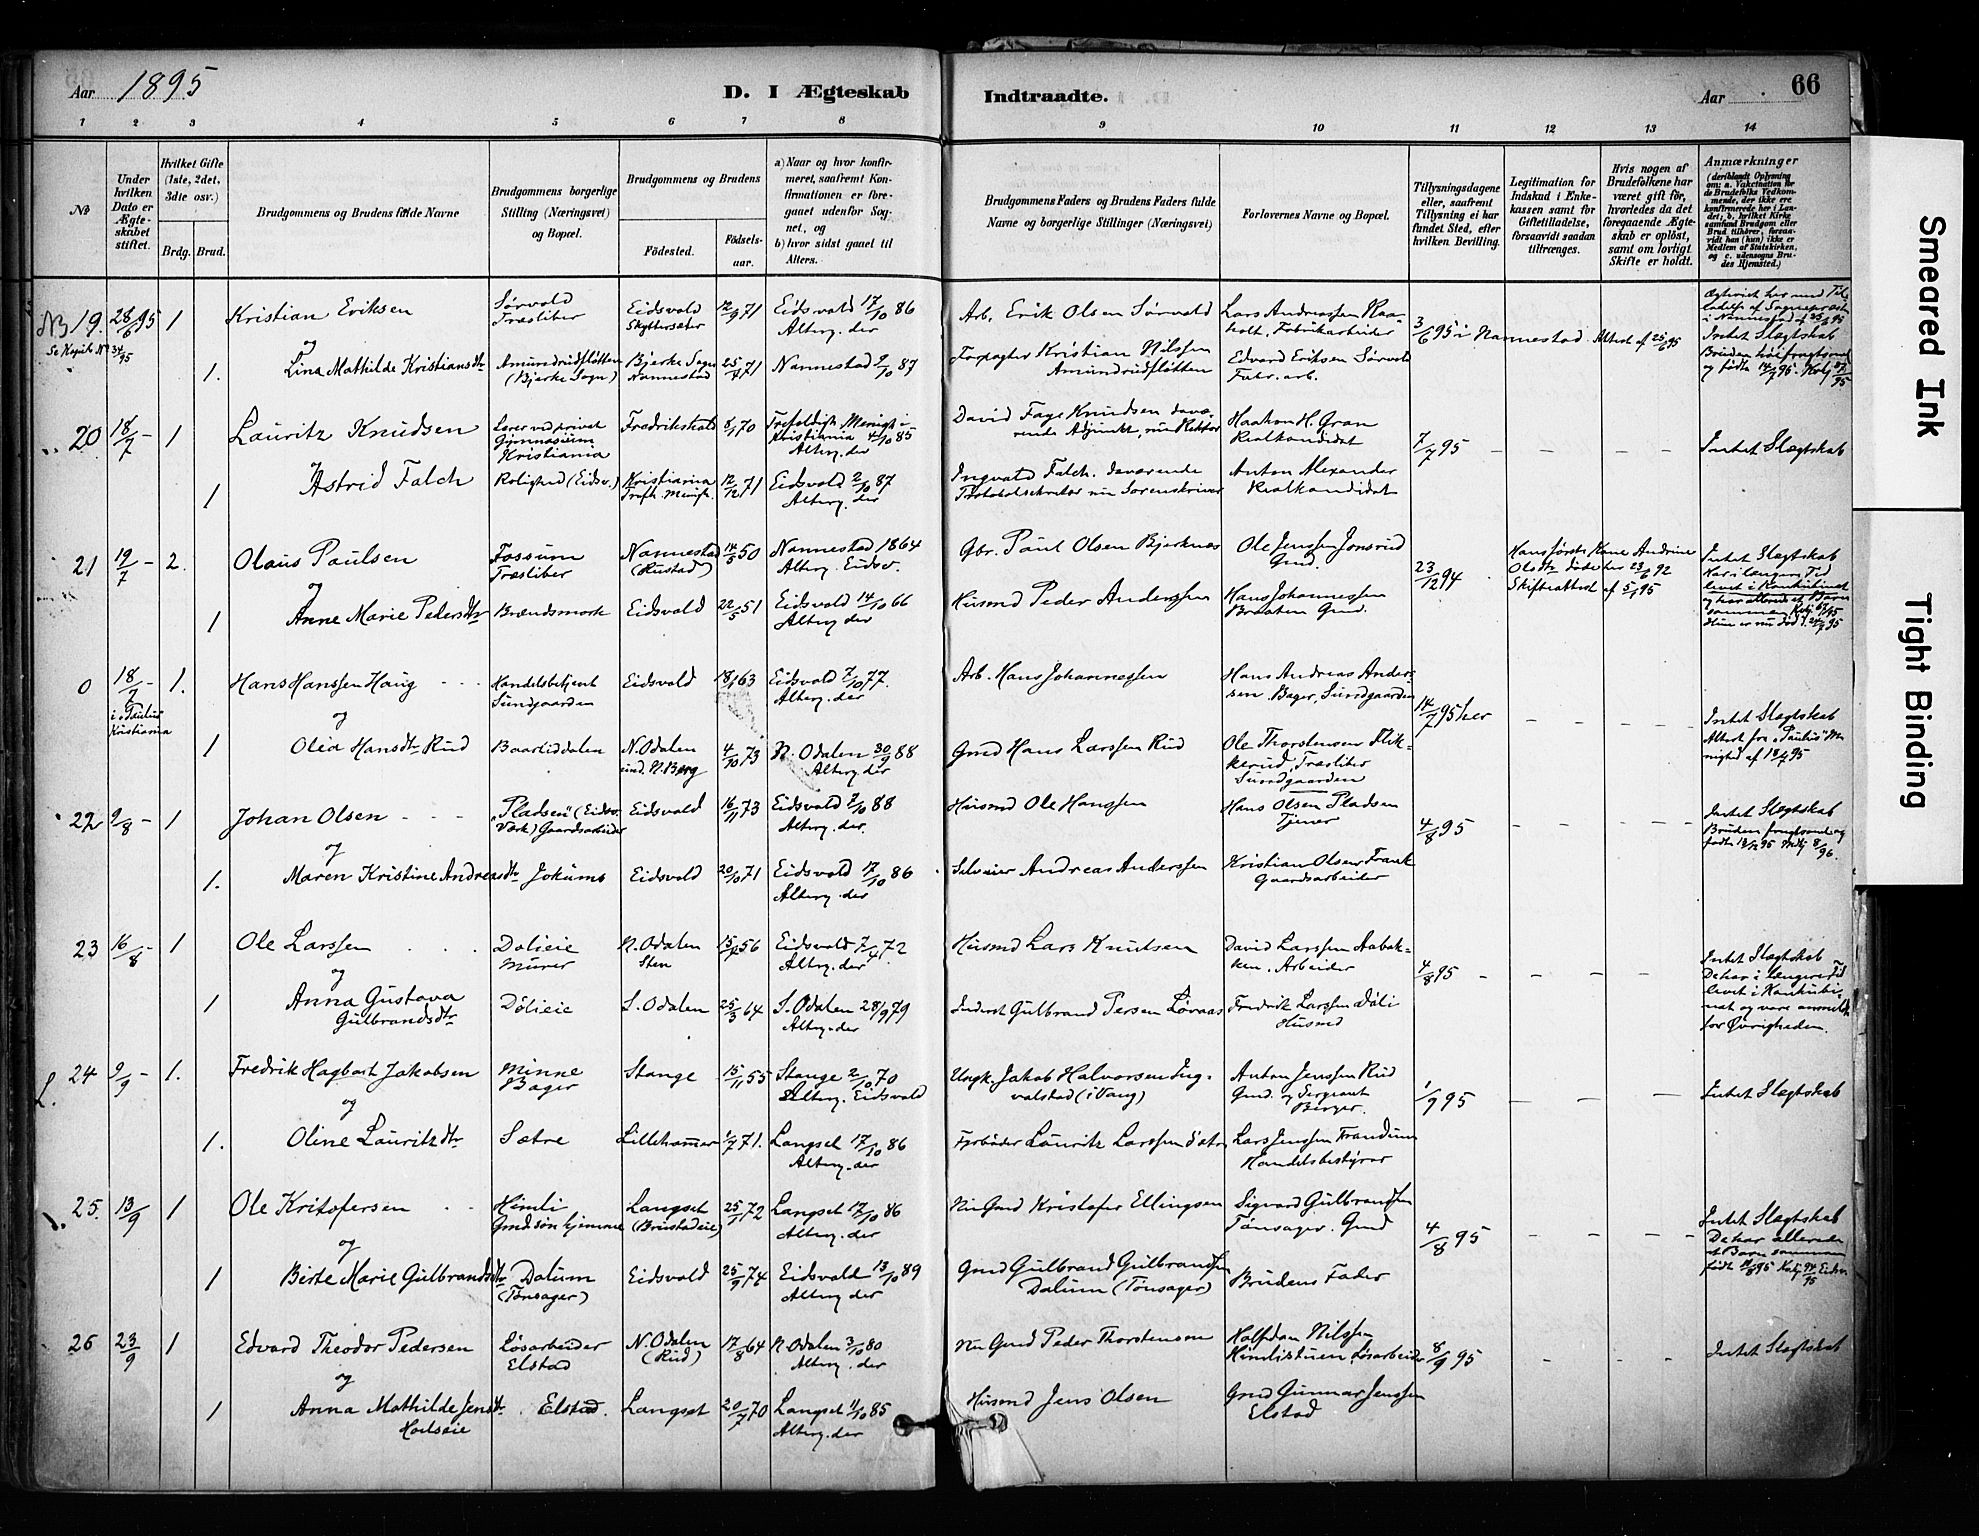 Aar 1895
D. I Ægteskab Indtraadte.
Aar
66
1 2 3 4 5 6 7 8 9 10 11 12 13 14
№
Under hvilken Dato er Ægteskabet stiftet.
Hvilket Gifte (1ste, 2det, 3die osv.)
Brdg. Brud.
Brudgommens og Brudens fulde Navne
Brudgommens borgerlige Stilling (Næringsvei) og Bopæl.
Brudgommens og Brudens
Fødested.
Fødsels-aar.
a) Naar og hvor konfirmeret, saafremt Konfirmationen er foregaaet udenfor Sognet, og
b) hvor sidst gaaet til Alters.
Brudgommens Faders og Brudens Faders fulde Navne og borgerlige Stillinger (Næringsvei)
Forlovernes Navne og Bopæl.
Tillysningsdagene eller, saafremt Tillysning ei har fundet Sted, efter hvilken Bevilling.
Legitimation for Indskud i Enkekassen samt for Giftetilladelse, forsaavidt saadan tiltrænges.
Hvis nogen af Brudefolkene har været gift før, hvorledes da det foregaaende Ægteskab er opløst, samt om lovligt Skifte er holdt.
Anmærkninger (deriblandt Oplysning om: a. Vakcination for de Brudefolks Vedkommende, der ikke ere konfirmerede her i Landet; b. hvilket Kirkesamfund Brudgom eller Brud tilhører, forsaavidt han (hun) ikke er Medlem af Statskirken, og c. udensogns Brudes Hjemsted.)
NB 19. 28/6 95 1 Kristian Eriksen Sørvold Træsliber Eidsvold 12/9 71 Eidsvold 17/10 86 Alterg. der Arb. Erik Olsen Sørvold Lars Andreassen Raaholt, Fabrikarbeider 3/6 95 i Nannestad Attest af 25/6 95
og
1. Lina Mathilde Kristiansdtr Amundrudfløtten (Bjerke Sogn) Bjerke Sogn Nannestad 25/4 71 Nannestad 9/10 87 Forpagter Kristian Nilssen Amundrudfløtten Edvard Eriksen Sørvold Fabr. arb. Intet Slægtskab
20 18/7 - 1 Lauritz Knudsen Lærer ved privat Gymnasium Kristiania Fredrikstad 8/1 70 Trefoldigh. Menigh. i Kristiania 4/10 85 Alterg. der David Faye Knudsen daværende Adjunkt, nu Rektor Haakon H. Gran Realkandidat 7/7 95 - - - - Intet Slægtskab
og
1 Astrid Falch Rolighed (Eidsv.) Kristiania 12/12 71 Eidsvold 2/10 87 Alterg. der Ingvald Falch, daværende Protokolsekretær nu Sorenskriver Anton Alexander Realkandidat
21 19/7 - 2. Olaus Paulsen Fossum Træsliber Nannestad (Rustad) 14/3 50 Nannestad 1864 Alterg. Eidsv. Gbr. Paul Olsen Bjerknes Ole Jenssen Jonsrud Gmd. 23/12 94 Hans første Kone Andrine Olsdtr døde her 23/6 92 Skifteattest af 5/1 95 Intet Slægtskab
og
1 Anne Marie Pedersdtr Brændsmork Eidsvold 22/5 51 Eidsvold 14/10 66 Alterg. der Husmd Peder Anderssen Hans Johannessen Braaten Gmd.
0 18/7 - i "Paulus" Kristiania 1. Hans Hanssen Haug Handelsbetjent Sundgaarden Eidsvold 18/1 63 Eidsvold 7/10 77. Alterg. der Arb. Hans Johannessen Hans Andreas Anderssen Bager, Sundgaarden 14/7 95 her - - - Intet Slægtskab Attest fra "Paulus" Menighed af 18/7 95
og
1 Olea Hansdtr Rud Baarliddalen N. Odalen 4/10 73 N. Odalen 30/9 88 Alterg. der Gmd Hans Larssen Rud Ole Thorstensen Flikkerud, Træsliber Sundgaarden
22 9/8 - 1 Johan Olsen "Pladsen" (Eidsv. Værk) Gaardsarbeider Eidsvold 16/11 73 Eidsvold 7/10 88 Alterg. der. Husmd Ole Hanssen Hans Olsen Pladsen Tjener 4/8 95 - - - - Intet Slægtskab
og
1. Maren Kristine Andreasdtr Jokums Eidsvold 20/10 71 Eidsvold 17/10 86 Alterg. der Selveier Andreas Anderssen Kristian Olsen Gaardsarbeider
23 16/8 - 1 Ole Larssen Dølieie Murer N. Odalen Sten 15/7 56 Eidsvold 7/4 72 Alterg. der Husmd Lars Knutsen David Larssen Aabakken, Arbeider 4/8 95 - - - - Intet Slægtskab De har i længere Tid levet i Konkubinat og vare anmeldt for Øvrigheden.
og
1 Anna Gustava Gulbrandsdtr Dølieie S. Odalen 25/3 64 S. Odalen 28/9 79 Alterg. der Inderst Gulbrand Persen Løvaas Fredrik Larssen Døli Husmd
L. 24 9/9 - 1. Fredrik Hagbart Jakobsen Minne Bager Stange 15/11 55 Stange 2/10 70 Alterg. Eidsvold Ungk. Jakob Halvorsen Ingvalstad (i Vang) Anton Jenssen Rud Gmd. og Sergeant 1/9 95 - - - Intet Slægtskab
og
1. Oline Lauritzdtr Sætre Lillehammer 1/7 71. Langset 17/10 86 Alterg. der Fyrbøder Lauritz Larssen Sætre Lars Jenssen Trandum Handelsbestyrer
25. 13/9 1 Ole Kristofersen Himli Gmdsøn hjemme Langset (Brustadeie) 25/11 72 Langset 17/10 86 Alterg. der Nu Gmd Kristofer Ellingsen Sigvard Gulbrandsen Tønsager. Gmd 4/8 95 - - - - Intet Slægtskab De har allerede et Barn sammen
og
1 Birte Marie Gulbrandsdtr Dalum (Tønsager) Eidsvold 25/9 74 Eidsvold 13/10 89 Alterg. der Gmd Gulbrand Gulbrandsen Dalum (Tønsager) Brudens Fader
26 23/9 1 Edvard Theodor Pedersen Løsarbeider Elstad N. Odalen (Rud) 17/8 64 N. Odalen 3/10 80 Alterg. der Nu Gmd Peder Thorstensen Halfdan Nilssen Himlistuen, Løsarbeider 8/9 95 - - - Intet Slægtskab
og
1 Anna Mathilde Jensdtr Elstad. Langset 20/7 70 Langset 11/10 85 Alterg. der Husmd Jens Olsen Gmd Gunnar Jenssen Elstad
Smeared Ink
Tight Binding